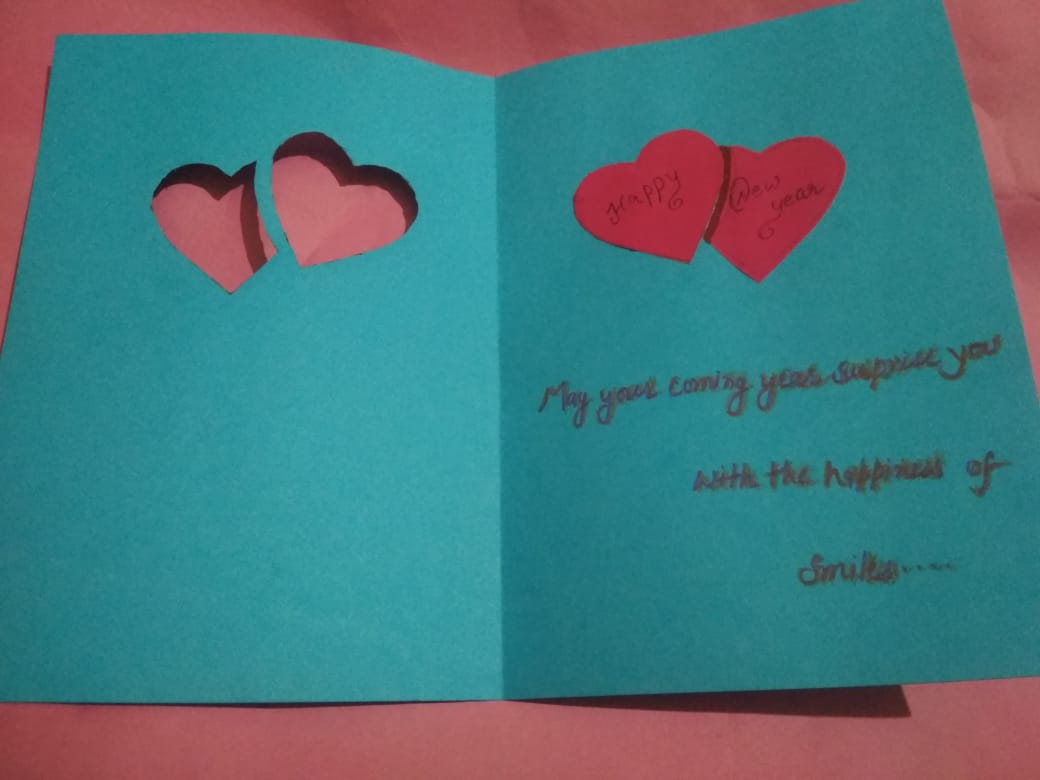 Happy
New
year
May your coming year surprise you
with the happiness of
Smiles.....